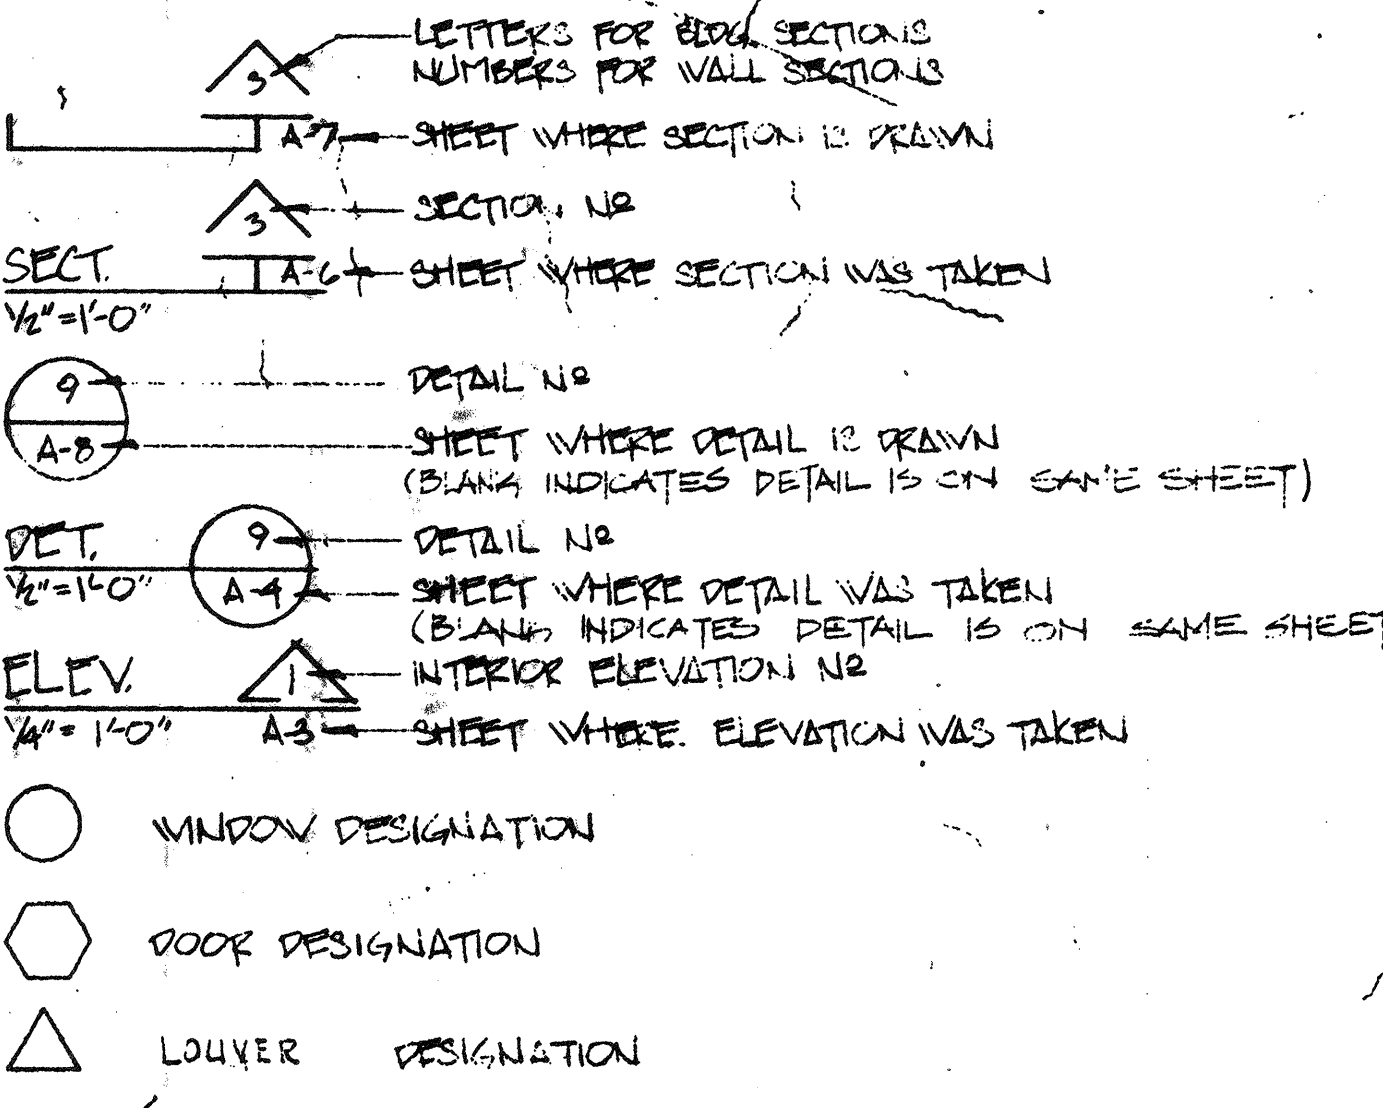 LETTERS FOR BLDG. SECTIONS
3
NUMBERS FOR WALL SECTIONS
A-7 SHEET WHERE SECTION IS DRAWN
3 SECTION Nº
SECT. A-6 SHEET WHERE SECTION WAS TAKEN
1/2"=1'-0"
9 DETAIL Nº
A-8 SHEET WHERE DETAIL IS DRAWN
(BLANK INDICATES DETAIL IS ON SAME SHEET)
DET. 9 DETAIL Nº
1/2"=1'-0" A-4 SHEET WHERE DETAIL WAS TAKEN
(BLANK INDICATES DETAIL IS ON SAME SHEET
ELEV. 1 INTERIOR ELEVATION Nº
1/4"= 1'-0" A-3 SHEET WHERE ELEVATION WAS TAKEN
WINDOW DESIGNATION
DOOR DESIGNATION
LOUVER DESIGNATION